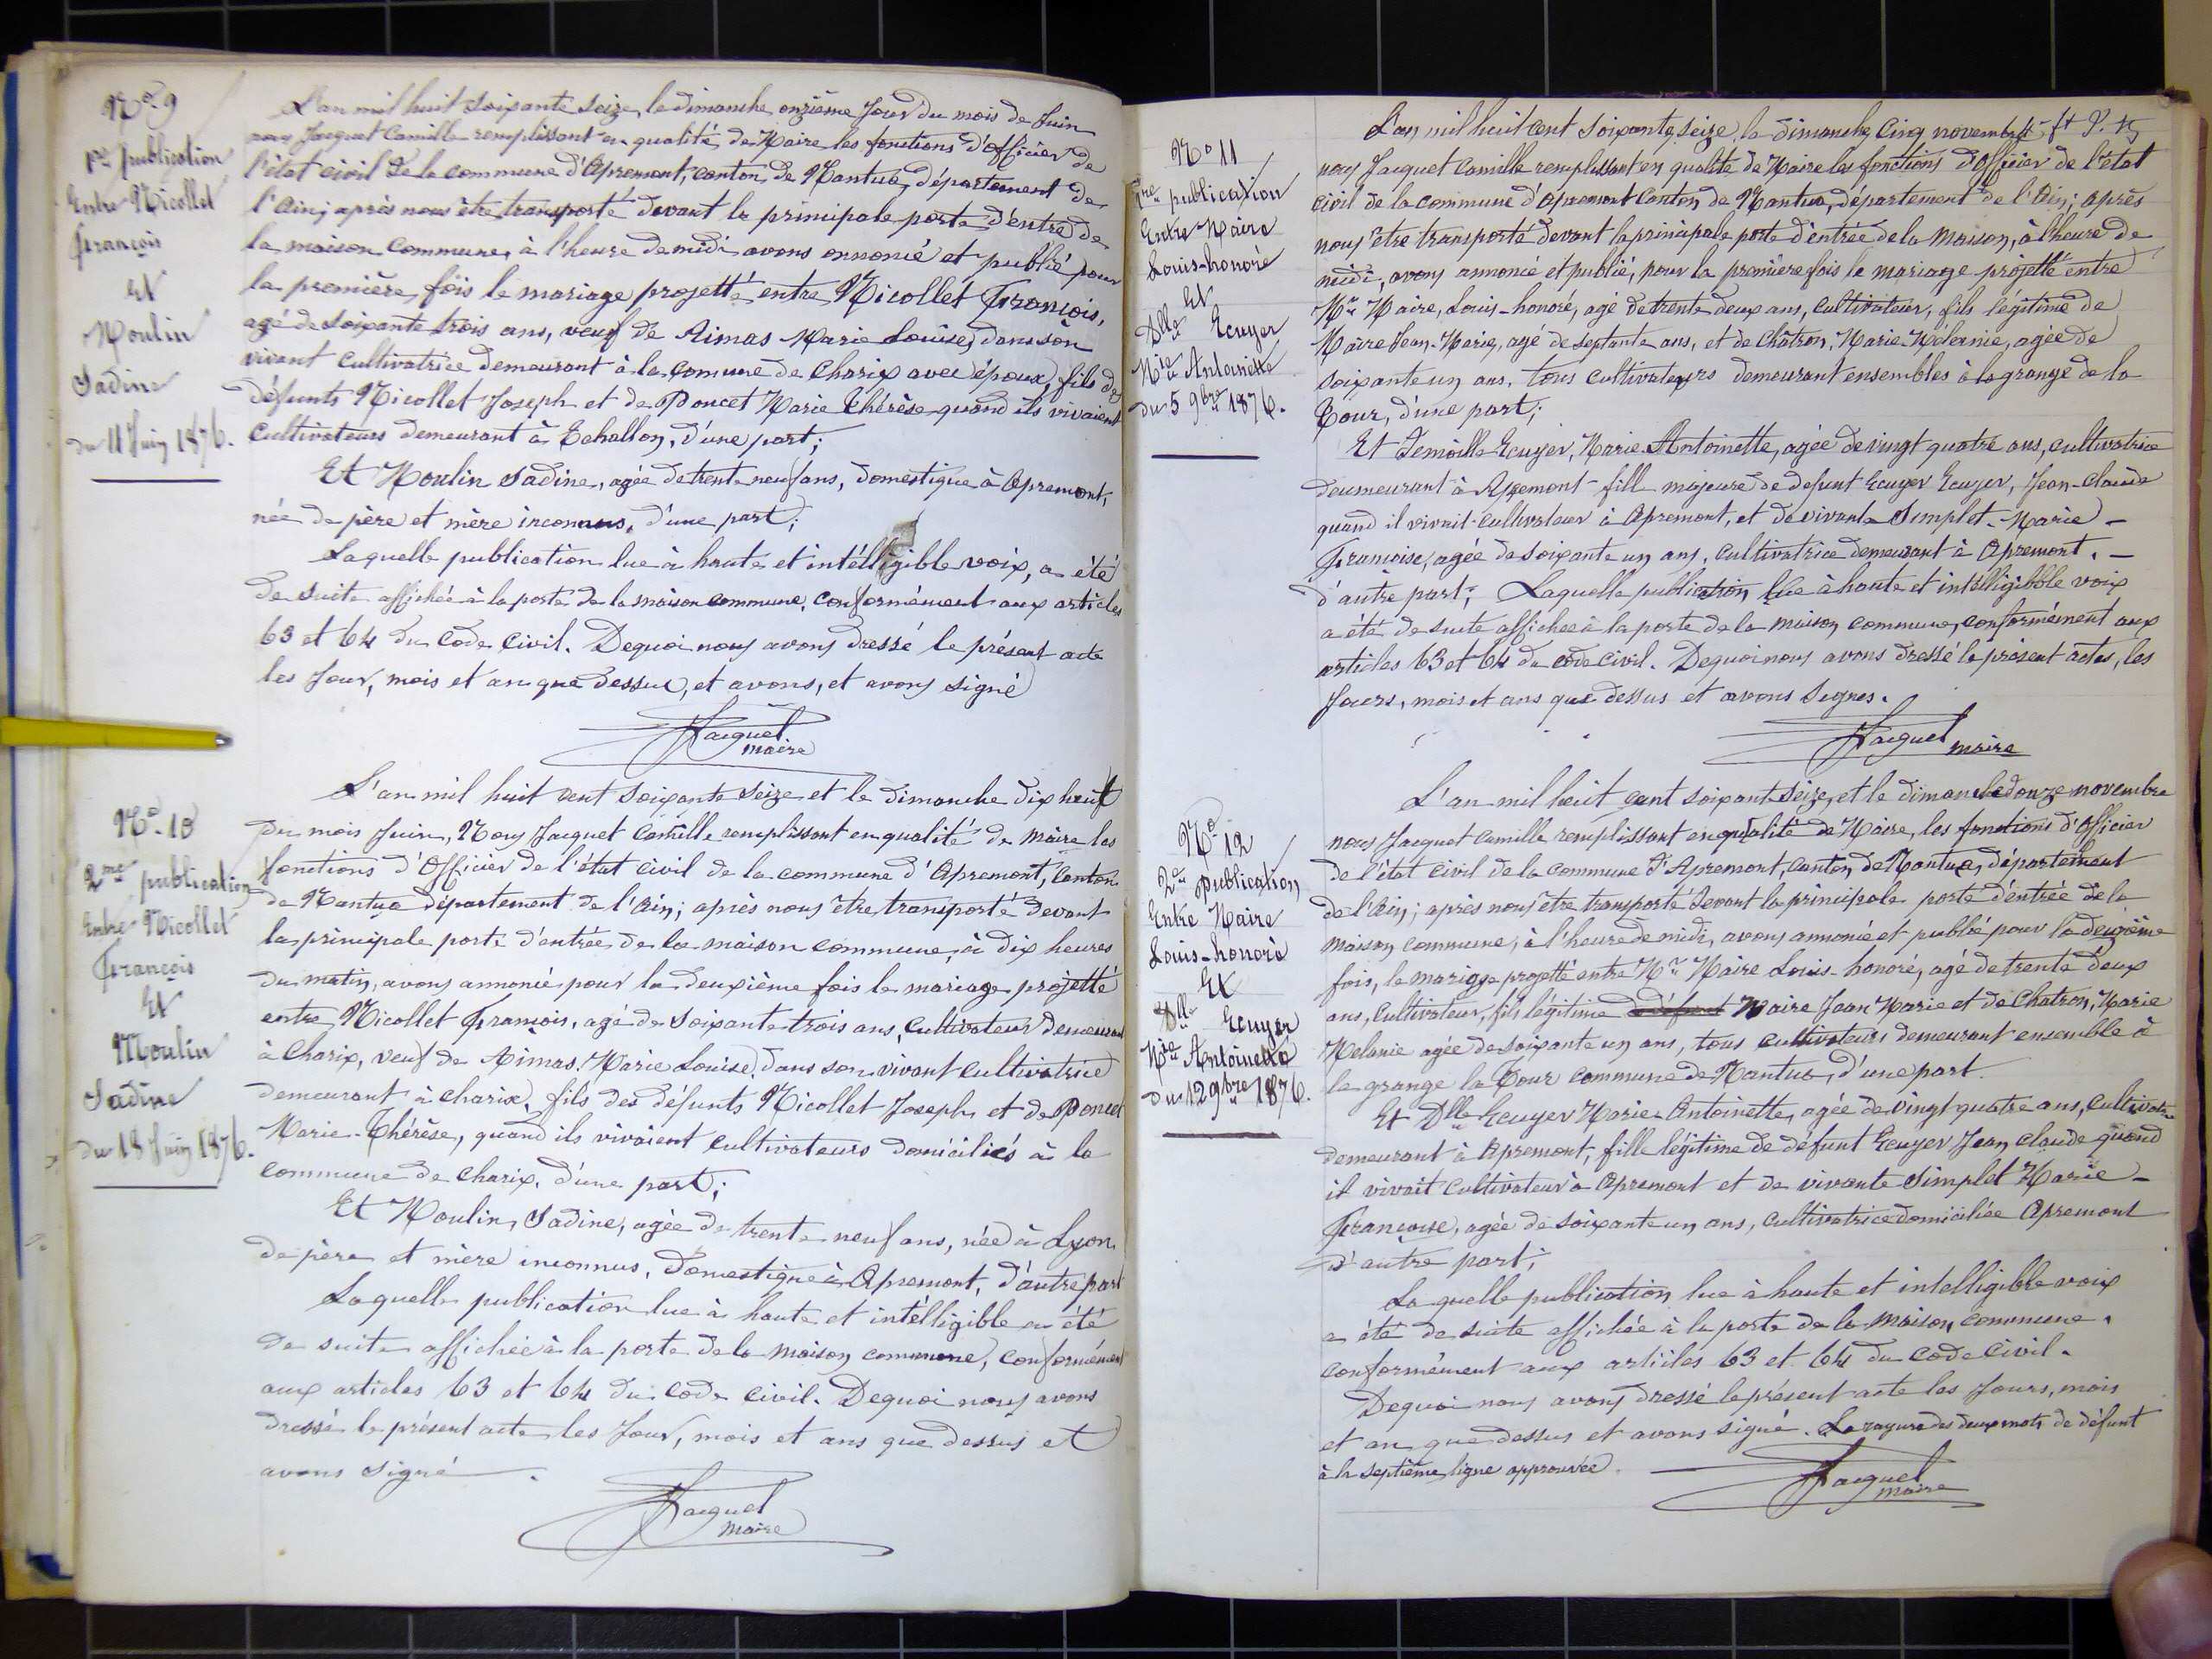 No 9
1re publication
Entre Nicollet
françois
Et
Moulin
Sadine
du 11 Juin 1876.
L'an mil huit soixante seize le dimanche onzième Jour du mois de Juin
nous Jacquet Camille remplissant en qualité de Maire les fonctions d'Officier de
l'état civil de la commune d'Apremont, canton de Nantua, département de
l'Ain; après nous être transporté devant la principale porte d'entré de
la maison commune, à l'heure de midi avons annoncé et publié pour
la première fois le mariage projetté entre Nicollet François,
agé de soixante trois ans, veuf de Aimas Marie Louise, dans son
vivant cultivatrice demeurant à la comune de Charix avec époux, fils de
défunts Nicollet Joseph et de Poncet Marie Thérèse quand ils vivaient
cultivateurs demeurant à Echallon, d'une part;
Et Moulin Sadine, agée de trente neuf ans, domestique à Apremont,
née de père et mère inconnus, d'une part;
Laquelle publication lue à haute et intélligible voix, a été
de suite affichée à la porte de la maison commune, conformément aux articles
63 et 64 du Code Civil. Dequoi nous avons dressé le présent acte
les Jour, mois et an que dessus, et avons, et avons signé
Jacquet
maire
No 10
2me publication
Entre Nicollet
François
Et
Moulin
Sadine
du 18 Juin 1876.
L'an mil huit cent soixante seize et le dimanche dix huit
du mois Juin, Nous Jacquet Camille remplissant en qualité de maire les
fonctions d'Officier de l'état civil de la commune d'Apremont, canton
de Nantua département de l'Ain; après nous être transporté devant
la principale porte d'entrée de la maison commune, à dix heures
du matin, avons annoncé pour la deuxième fois le mariage projetté
entre Nicollet François, agé de soixante trois ans, cultivateur demeurant
à Charix, veuf de Aimas Marie Louise, dans son vivant cultivatrice
demeurant à charix, fils des défunts Nicollet Joseph et de Poncet
Marie-Thérèse, quand ils vivaient cultivateurs domiciliés à la
commune de Charix, d'une part;
Et Moulin, Sadine, agée de trente neuf ans, née à Lyon
de père et mère inconnus, domestique à Apremont, d'autre part
Laquelle publication lue à haute et intélligible a été
de suite affichée à la porte de la maison commune, conformément
aux articles 63 et 64 du Code Civil. Dequoi nous avons
dressé le présent acte les Jour, mois et ans que dessus et
avons signé
Jacquet
maire
No 11
1re publication
Entre Maire
Louis-honoré
Et
Dlle Ecuyer
Mie Antoinette
du 5 9bre 1876.
L'an mil huit cent soixante seize, le dimanche cinq novembre
nous Jacquet Camille remplissant en qualité de Maire les fonctions d'Officier de l'état
civil de la commune d'Apremont canton de Nantua, département de l'Ain; après
nous être transporté devant la principale porte d'entrée de la Maison, à l'heure de
midi, avons annoncé et publié, pour la première fois le mariage projetté entre
Mr Maire, Louis-honoré, agé de trente deux ans, cultivateur, fils légitime de
Maire Jean-Marie, agé de septante ans, et de Chatron, Marie Mélannie, agée de
soixante un ans, tous cultivateurs demeurant ensembles à la grange de la
Tour, d'une part;
Et Demoille Ecuyer, Marie-Antoinette, agée de vingt quatre ans, cultivatrice
deumeurant à Apremont fill majeure de defunt Ecuyer Ecuyer, Jean-Claude
quand il vivait cultivateur à Apremont, et de vivante Simplet-Marie-
Françoise, agée de soixante un ans, cultivatrice demeurant à Apremont. -
d'autre part; Laquelle publication lue à haute et intélligibble voix
a été de suite affichée à la porte de la maison commune, conformément aux
articles 63 et 64 du code civil. Dequoi nous avons dressé le présent actes, les
Jours, mois et ans que dessus et avons signes.
Jacquet maire
No 12
2e publication
Entre Maire
Louis-honoré
Et
Dlle Ecuyer
Mie Antoinette
du 12 9bre 1876.
L'an mil huit cent soixant seize, et le dimanche douze novembre
nous Jacquet Camille remplissant en qualité de Maire, les fonctions d'Officier
de l'état civil de la commune d'Apremont, canton de Nantua, département
de l'Ain; après nous être transporté devant la principale porte d'entrée de la
maison commune, à l'heure de midi, avons annoncé et publié pour la deuxième
fois, le mariage projetté entre Mr Maire Louis-honoré, agé de trente deux
ans, Cultivateur, fils légitime de défunt Maire Jean Marie et de Chatron, Marie
Melanie agée de soixante un ans, tous cultivateurs demeurant ensemble à
la grange la Tour commune de Nantua, d'une part.
Et Dlle Ecuyer Marie-Antoinette, agée de vingt quatre ans, Cultivatrice
demeurant à Apremont, fille légitime de défunt Ecuyer Jean claude quand
il vivait cultivateur à Apremont et de vivante Simplet Marie-
Françoise, agée de soixante un ans, cultivatrice domiciliée Apremont
d'autre part;
La quelle publication lue à haute et intelligible voix
a été de suite affichée à la porte de la maison commune,
conformément aux articles 63 et 64 du Code Civil.
Dequoi nous avons dressé le présent acte les Jours, mois
et an que dessus et avons signé. La rayure des deux mots de défunt
à la septième ligne approuvée.
Jacquet
maire